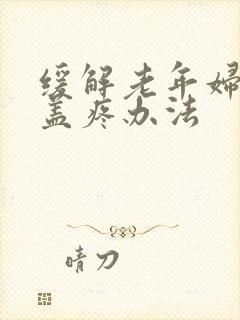 缓解老年婦
盖疼办法
晴刀